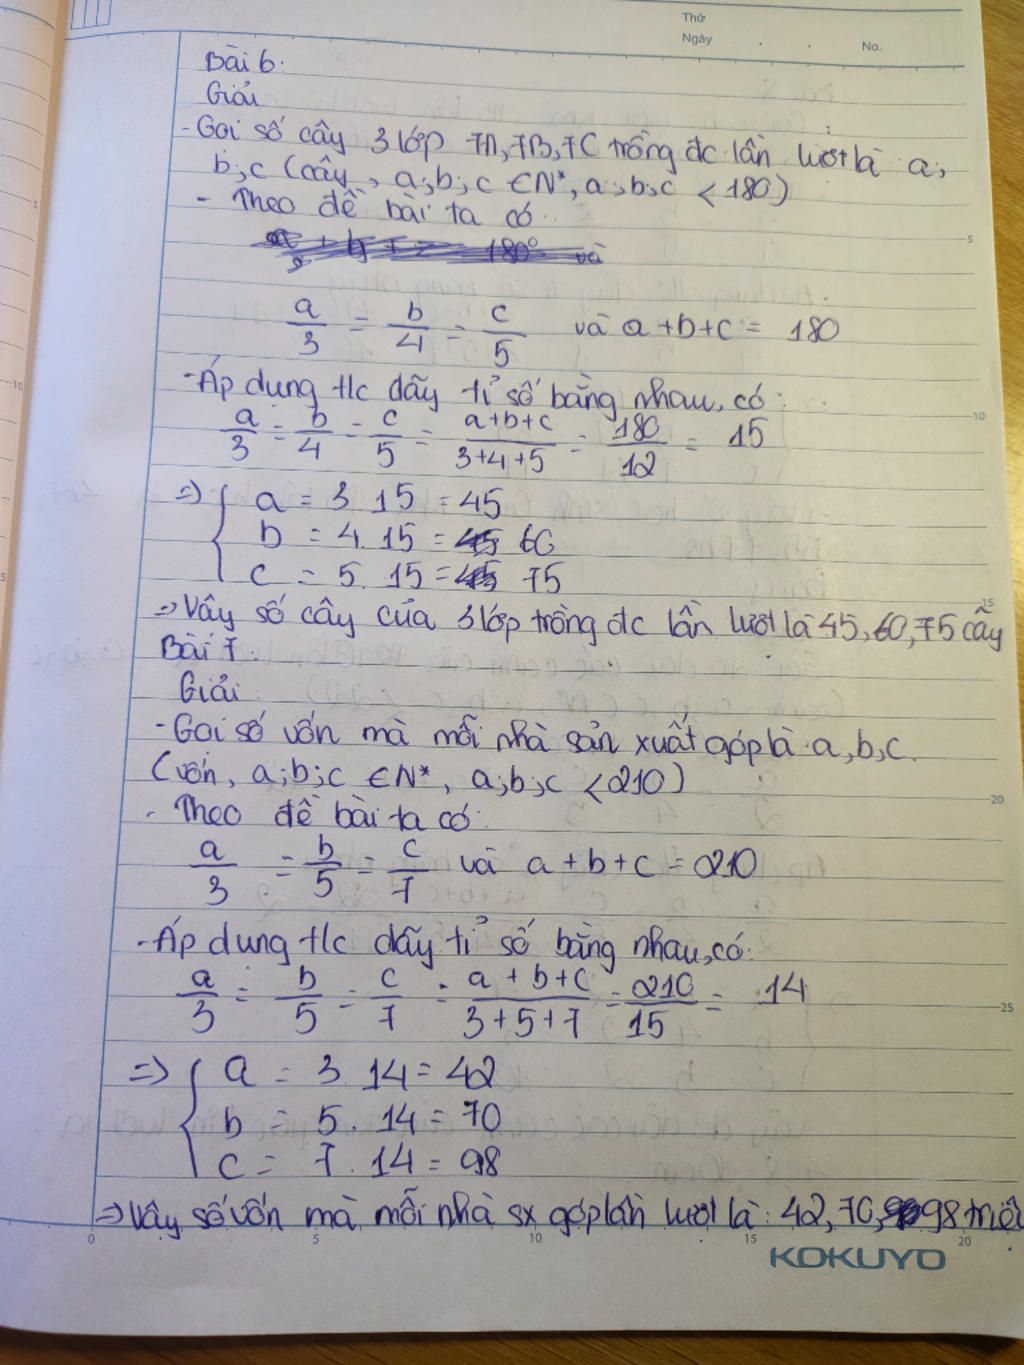 Thứ
Ngày . . No.
Bài 6:
Giải
- Gọi số cây 3 lớp 7A, 7B, 7C trồng đc lần lượt là a;
b; c (cây, a; b; c ∈ N*, a; b; c < 180)
- Theo đề bài ta có
và
a/3 = b/4 = c/5 và a + b + c = 180
- Áp dụng t/c dãy tỉ số bằng nhau, có:
a/3 = b/4 = c/5 = a+b+c/3+4+5 = 180/12 = 15
=> { a = 3.15 = 45
b = 4.15 = 60
c = 5.15 = 75
=> Vậy số cây của 3 lớp trồng đc lần lượt là 45, 60, 75 cây
Bài 7.
Giải
- Gọi số vốn mà mỗi nhà sản xuất góp là a, b, c.
(vốn, a; b; c ∈ N*, a; b; c < 210)
- Theo đề bài ta có:
a/3 = b/5 = c/7 và a + b + c = 210
- Áp dụng t/c dãy tỉ số bằng nhau, có:
a/3 = b/5 = c/7 = a + b + c/3 + 5 + 7 = 210/15 = 14
=> { a = 3.14 = 42
b = 5.14 = 70
c = 7.14 = 98
=> Vậy số vốn mà mỗi nhà sx góp lần lượt là: 42, 70, 98 triệu
0 5 10 15 20
KOKUYO